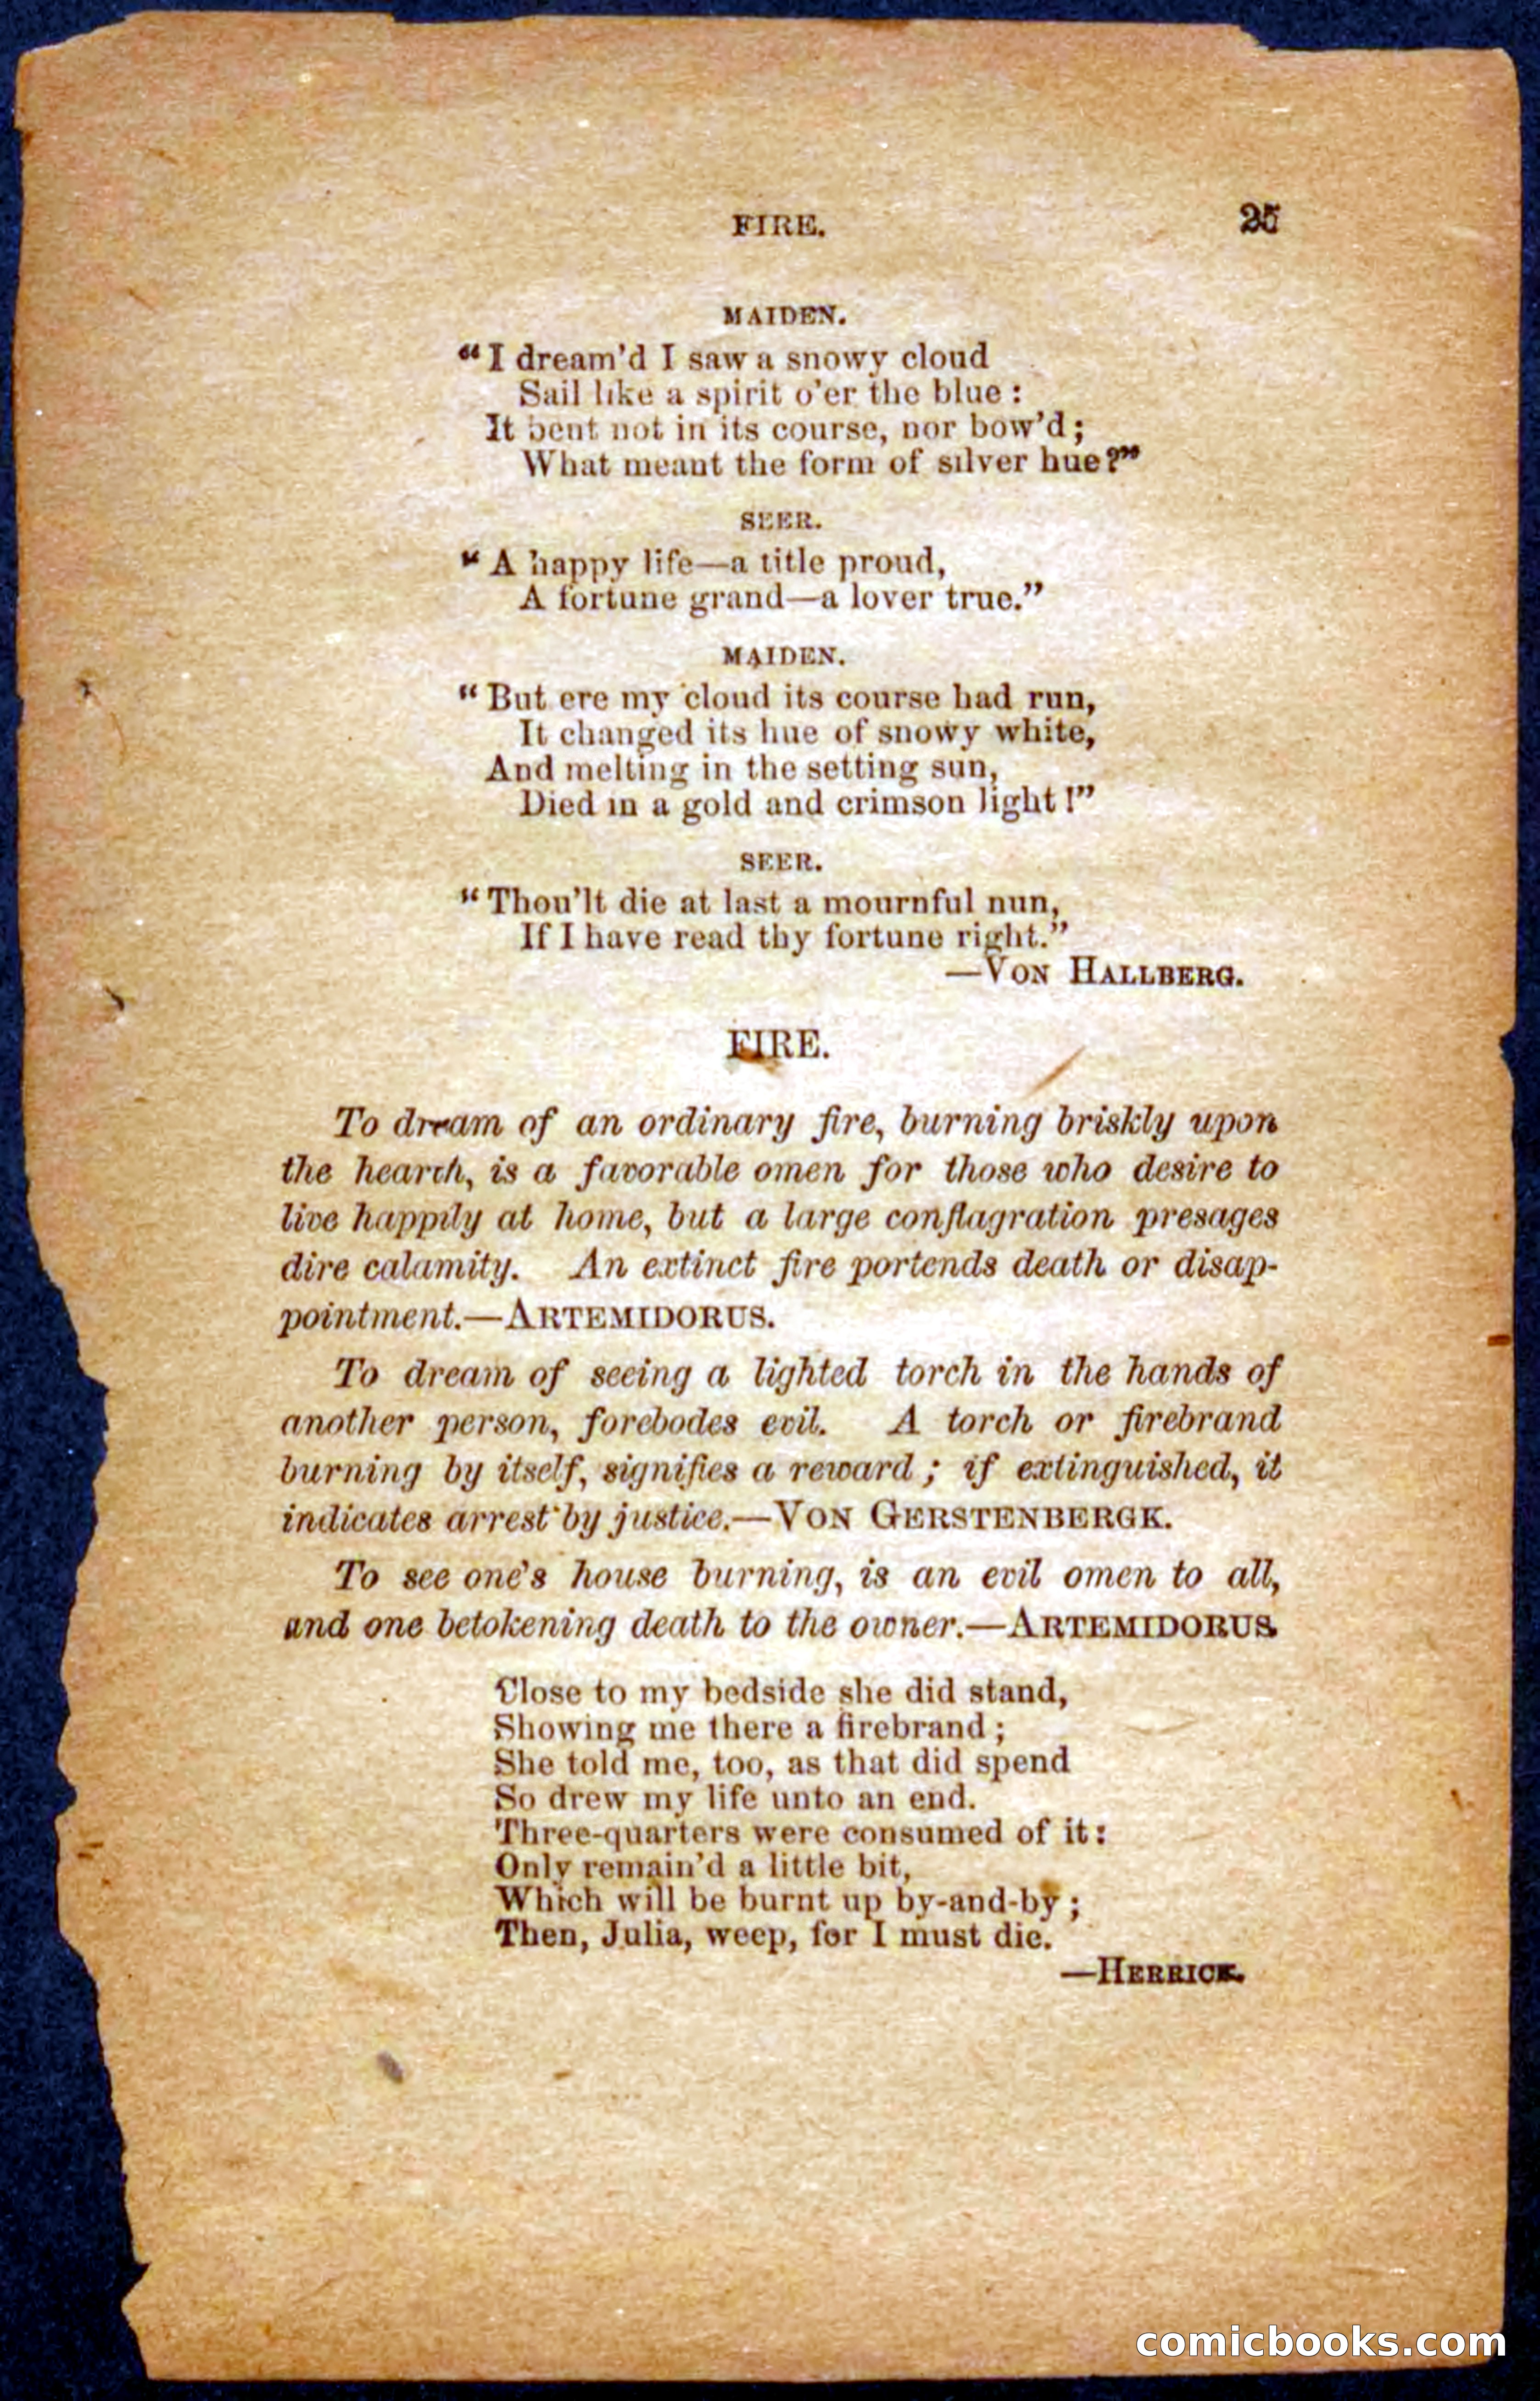 FIRE. 25
MAIDEN.
“I dream'd I saw a snowy cloud
Sail like a spirit o'er the blue :
It bent not in its course, nor bow'd;
What meant the form of silver hue?”
SEER.
“A happy life—a title proud,
A fortune grand—a lover true.”
MAIDEN.
“But ere my cloud its course had run,
It changed its hue of snowy white,
And melting in the setting sun,
Died in a gold and crimson light!”
SEER.
“Thou'lt die at last a mournful nun,
If I have read thy fortune right.”
—VON HALLBERG.
FIRE.
To dream of an ordinary fire, burning briskly upon
the hearth, is a favorable omen for those who desire to
live happily at home, but a large conflagration presages
dire calamity. An extinct fire portends death or disap-
pointment.—ARTEMIDORUS.
To dream of seeing a lighted torch in the hands of
another person, forebodes evil. A torch or firebrand
burning by itself, signifies a reward ; if extinguished, it
indicates arrest by justice.—VON GERSTENBERGK.
To see one's house burning, is an evil omen to all,
and one betokening death to the owner.—ARTEMIDORUS.
Close to my bedside she did stand,
Showing me there a firebrand ;
She told me, too, as that did spend
So drew my life unto an end.
Three-quarters were consumed of it:
Only remain'd a little bit,
Which will be burnt up by-and-by ;
Then, Julia, weep, for I must die.
—HERRICK.
comicbooks.com